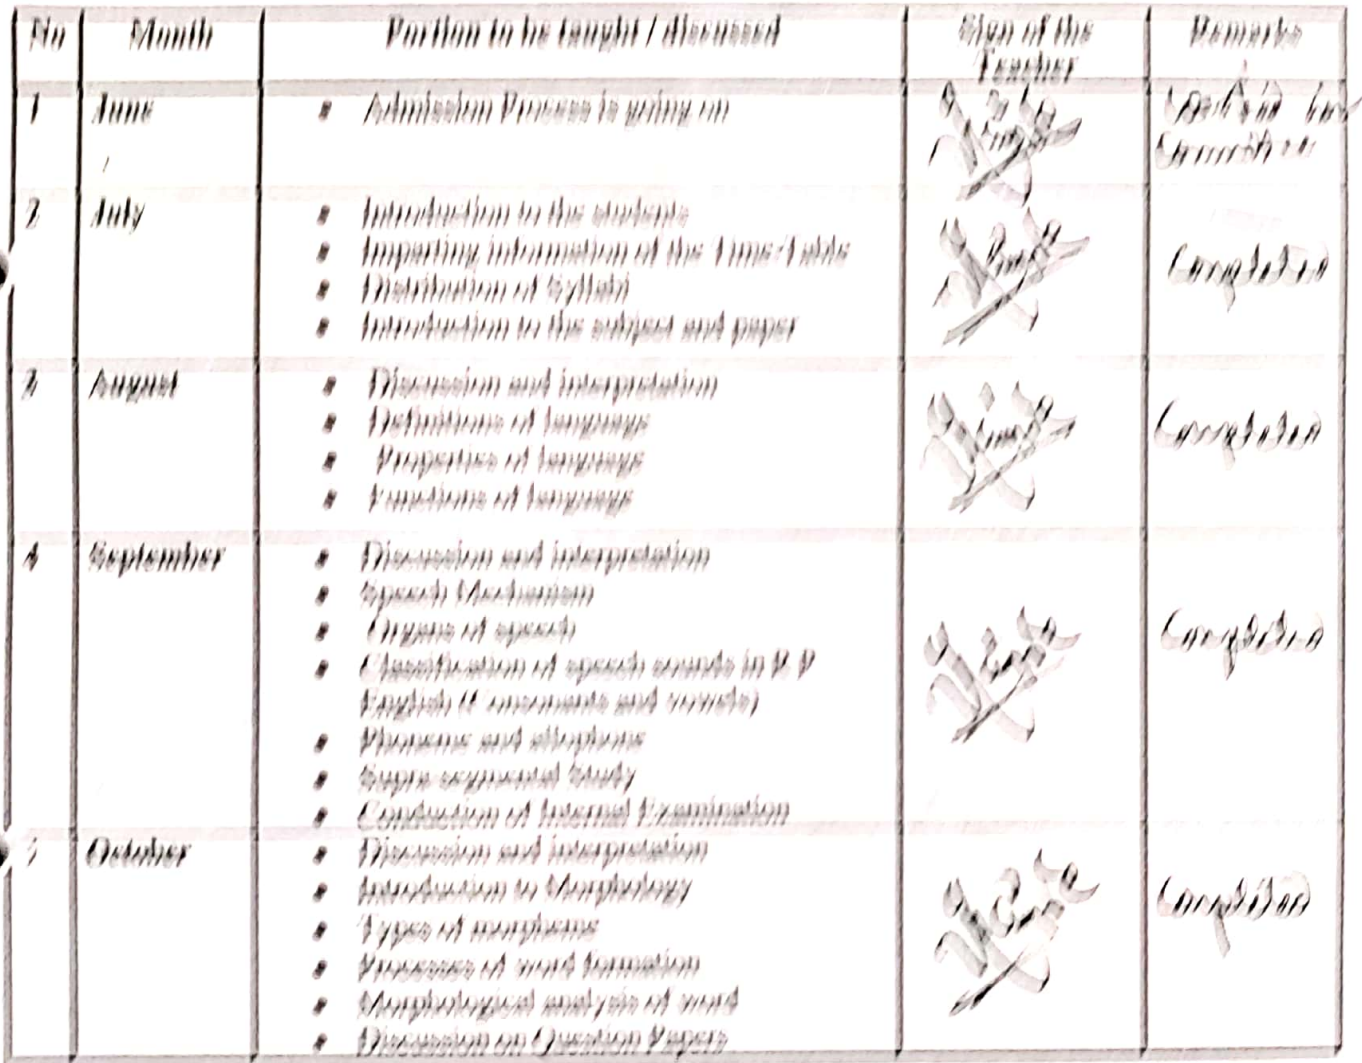 No Month Portion to be taught / discussed Sign of the Teacher Remarks
1 June • Admission Process is going on
2 July • Introduction to the students
• Imparting information of the Time-Table
• Distribution of Syllabi
• Introduction to the subject and paper
Completed
3 August • Discussion and interpretation
• Definitions of language
• Properties of language
• Functions of language
Completed
4 September • Discussion and interpretation
• Speech Mechanism
• Organs of speech
• Classification of speech sounds in R.P
English (Consonants and vowels)
• Phoneme and allophone
• Supra segmental Study
• Conduction of Internal Examination
Completed
5 October • Discussion and interpretation
• Introduction to Morphology
• Types of morpheme
• Processes of word formation
• Morphological analysis of word
• Discussion on Question Papers
Completed